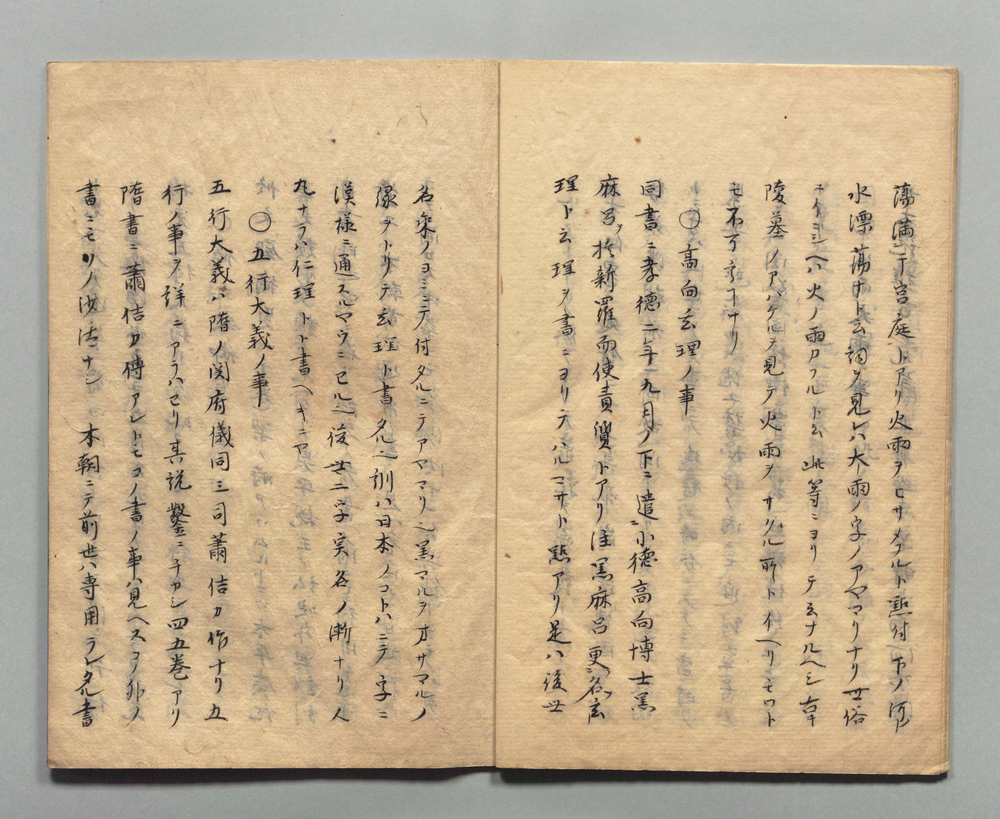 漂蕩ナト云詞ヲ見レハ大雨ノ字ノアヤマリナリ世俗
ニイニシヘハ火ノ雨カフルト云此等ニヨリテ云ナルヘシ古キ
陵墓ノアハケルヲ見テ火雨ヲサクル所トイヘリモツトモ
不可討ナリ
〇高向玄理ノ事
同書ニ孝徳二年九月ノ下ニ遣小徳高向博士黒
麻呂於新羅而使貢質トアリ注黒麻呂更名玄
理ト云理ヲ書ニヨリテハルマサト點アリ是ハ後世
名乘ノヨミニテ付タルニテアヤマリ也黒マルヲオサマルノ
縁ヲトリテ玄理ト書タル也訓ハ日本ノコトハニテ字ニ
漢様ニ通スルヤウニセル也後世二字実名ノ漸ナリ人
丸ナラハ仁理トト書ヘキニヤ
〇五行大義ノ事
五行大義ハ隋ノ開府儀同三司蕭佶カ作ナリ五
行ノ事ヲ詳ニアラハセリ其説鑿ニチカシ四五巻アリ
隋書ニ蕭佶カ傳アレトモコノ書ノ事ハ見ヘスコノ外ノ
書ニモソノ沙法ナシ 本朝ニテ前世ハ専用ラレタル書